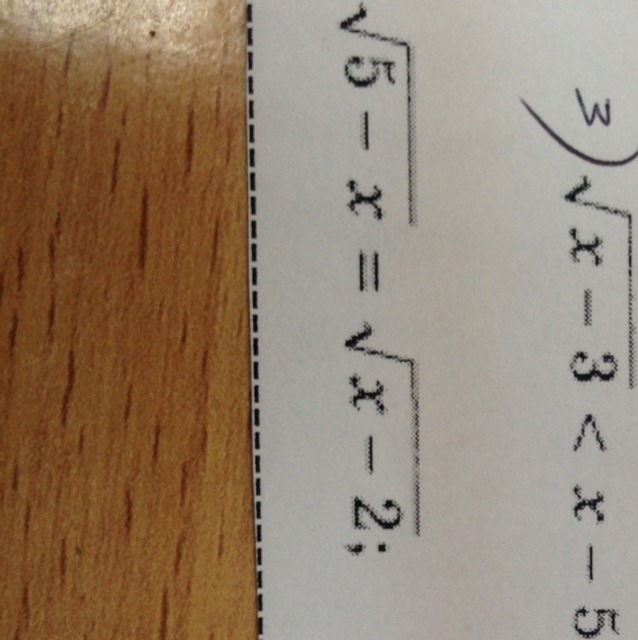 3) √x - 3 < x - 5
√5 - x = √x - 2;